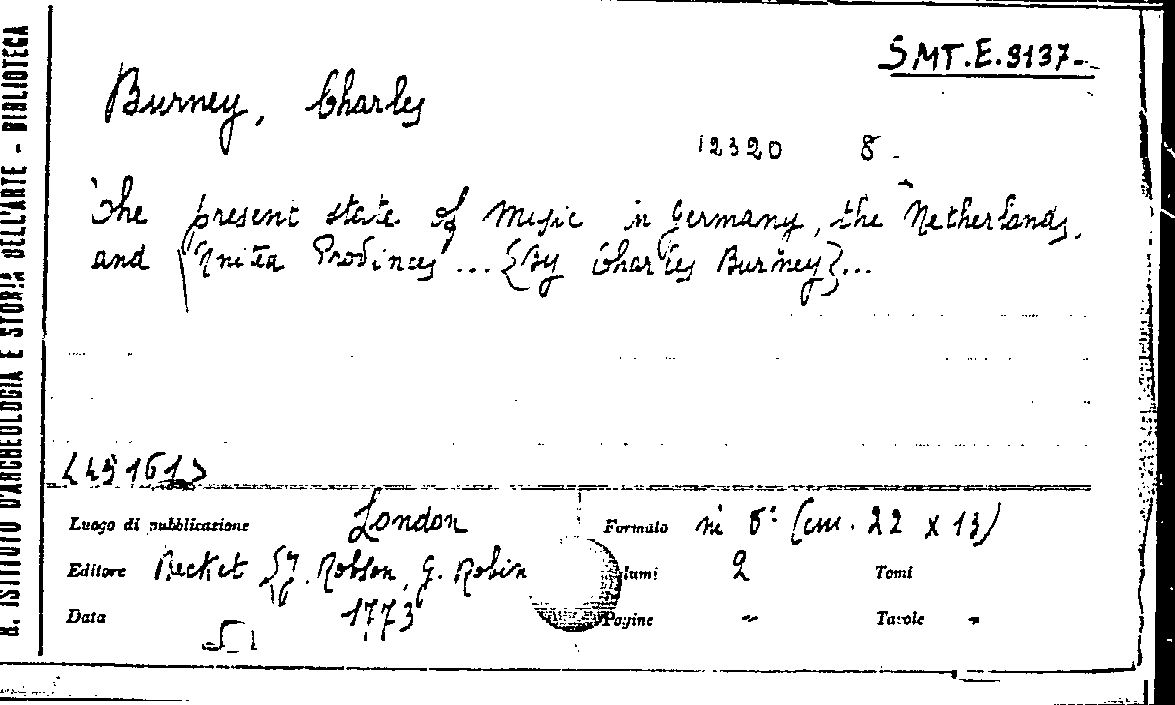 R. ISTITUTO D'ARCHEOLOGIA E STORIA DELL'ARTE - BIBLIOTECA
SMT.E.9137-
Burney, Charles
12320 8-
The present state of Music in Germany, the Netherlands,
and United Provinces ... {By Charles Burney}...
<49161>
Luogo di pubblicazione London
Formato in 8° (cm. 22 x 13)
Editore Becket {J. Robson, G. Robin
Volumi 2 Tomi
Data 1773
Pagine - Tavole -